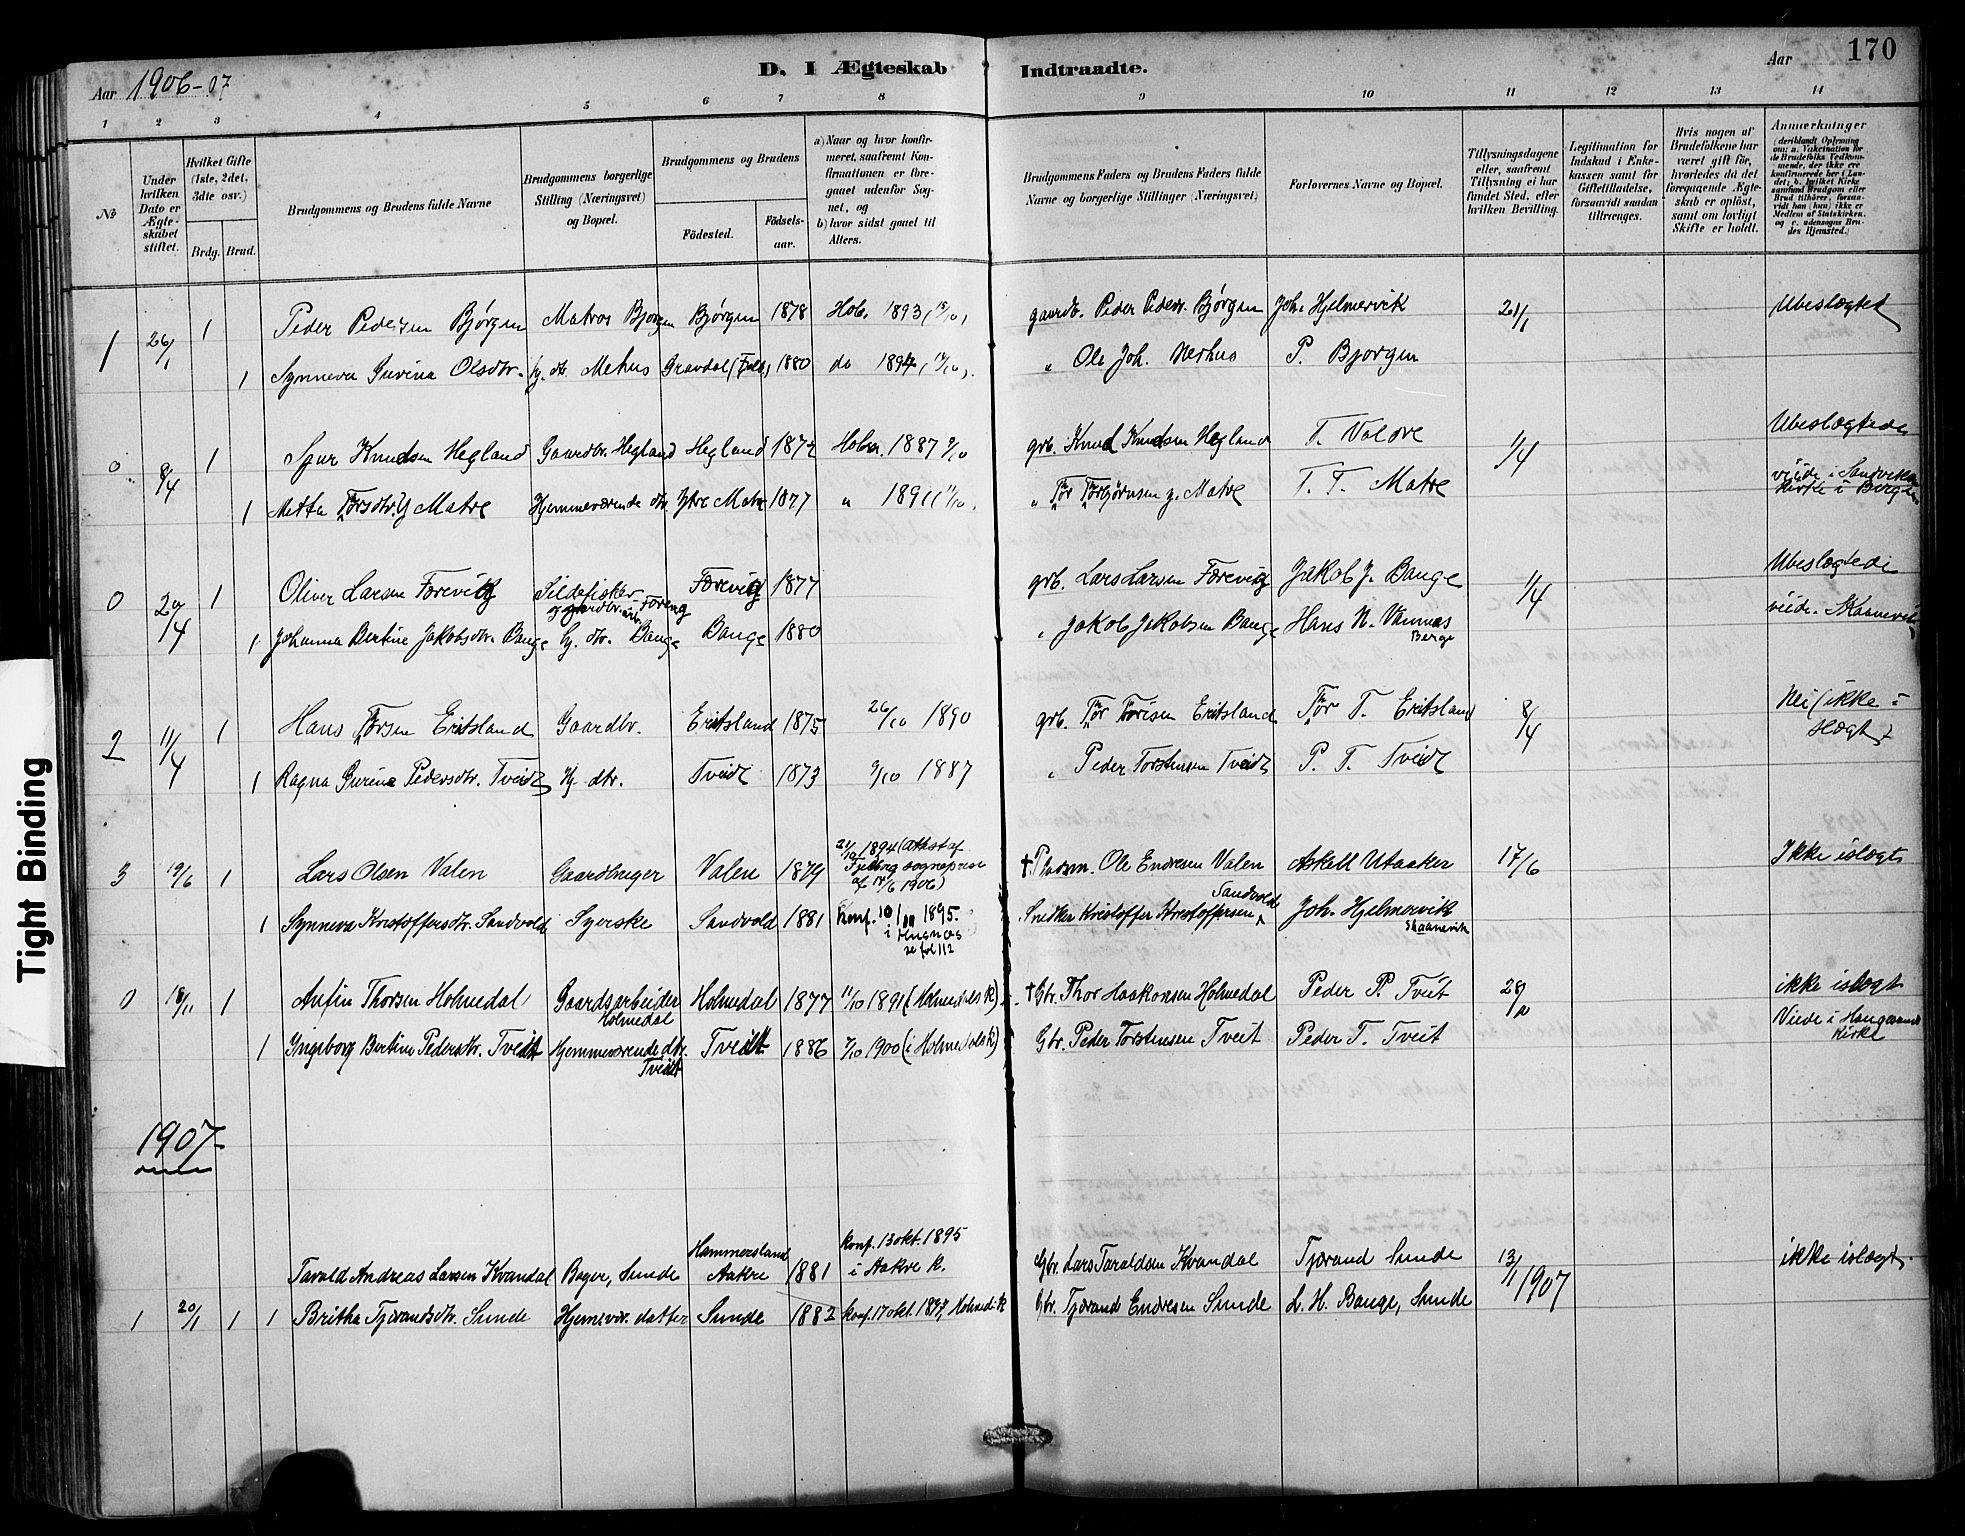 Aar 1906-07
D. I Ægteskab Indtraadte.
Aar 170
1 2 3 4 5 6 7 8 9 10 11 12 13 14
No
Under hvilken Dato er Ægteskabet stiftet.
Hvilket Gifte (1ste, 2det, 3dte osv.)
Brdg. Brud.
Brudgommens og Brudens fulde Navne
Brudgommens borgerlige Stilling (Næringsvei) og Bopæl.
Brudgommens og Brudens
Födested. Födsels-aar.
a) Naar og hvor konfirmeret, saafremt Konfirmationen er foregaaet udenfor Sognet, og
b) hvor sidst gaaet til Alters.
Brudgommens Faders og Brudens Faders fulde Navne og borgerlige Stillinger (Næringsvei)
Forlovernes Navne og Bopæl.
Tillysningsdagene eller, saafremt Tillysning ei har fundet Sted, efter hvilken Bevilling.
Legitimation for Indskud i Enkekassen samt for Giftetilladelse, forsaavidt saadan tiltrænges.
Hvis nogen af Brudefolkene har været gift för, hvorledes da det foregaaende Ægteskab er oplöst, samt om lovligt Skifte er holdt.
Anmærkninger (deriblandt Oplysning om: a. Vakcination for de Brudefolks Vedkommende, der ikke ere konfirmerede her i Landet; b. hvilket Kirkesamfund Brudgom eller Brud tilhörer, forsaavidt han (hun) ikke er Medlem af Statskirken, og c. udensogns Brudes Hjemsted.)
1 26/1 1 Peder Pedersen Bjørgen Matros Bjørgen Bjørgen 1878 Holm. 1893 (15/10) gaardb. Peder Peders. Bjørgen Joh. Hjelmervik 21/1 Ubeslægted
1 Synneva Gurina Olsdtr. hj. dtr. Mehus Gravdal 1880 do 1894 " Ole Joh. Nerhus P. Bjørgen
0 8/4 1 Sjur Knudsen Hegland Gaardbr. Hegland Hegland 1872 1887 9/10 grb. Knud Knudsen Hegland T. Valvre 1/4 Ubeslægtede
1 Metta Torsdtr. Y Matre Hjemmeværende dtr. Ytre Matre 1877 " 1891 11/10. " Tor Torbjørnsen y. Matre T. T. Matre viede i Sandvikens Kirke i Bergen
0 20/4 1 Oliver Larsen Færevig Sildefisker og gaardbr. arb. Færevig Færevig 1877 grb. Lars Larsen Færevig Jakob J. Bauge 1/4 Ubeslægtede
1 Johanna Bertine Jakobsdtr. Bauge Hj. dtr. Bauge Bauge 1880 " Jakob Jakobsen Bauge Hans N. Vannes Berge viede i Skaanevik
2 11/4 1 Hans Torsen Eritsland Gaardbr. Eritsland 1875 26/10 1890 grb. Tor Torisen Eritsland Tor T. Eritsland 8/4 Nei (ikke i Slægt)
1 Ragna Gurine Pedersdtr. Tveidt Hj. dtr. Tveidt 1873 9/10 1887 " Peder Torstensen Tveidt P. T. Tveidt
3 19/6 1 Lars Olsen Valen Gaardbruger Valen 1879 21/10 1894 (Attest af Fjelberg sogneprest af 14/6 1906) † Pladsm. Ole Endresen Valen Askell Utaaker 17/6 Ikke islægt
1 Synneva Kristoffersdtr. Sandvold Syerske Sandvold 1881 Konf. 1895. i Husnæs se fol 112 Snedker Kristoffer Kristoffersen Sandvold Joh. Hjelmervik Skaanevik
0 18/11 1 Anfin Thorsen Holmedal Gaardsarbeider Holmedal Holmedal 1877 11/10 1891 (Holmedals K). † Gbr. Thor Haakonsen Holmedal Peder P. Tveit 28/10 ikke islægt
1 Ingeborg Bertine Pedersdtr. Tveidt Hjemmeværende dtr. Tveidt Tveidt 1886 7/10 1900 (i Holmedals K) Gbr. Peder Torstensen Tveit Peder T. Tveit Viede i Haugesunds Kirke
1907
Tarald Andreas Larsen Kvandal Bager, Sunde Hammersland Aakre 1881 konf. 13 okt. 1895 i Aakre k. Gbr. Lars Taraldsen Kvandal Tjørand Sunde 13/1 1907 ikke islægt.
1 20/1 1 1 Britha Tjørandsdtr. Sunde Hjemmevær. datter Sunde 1882 konf. 17 okt. 1897, Holmed. K Gbr. Tjørand Endresen Sunde L. H. Bauge, Sunde
Tight Binding